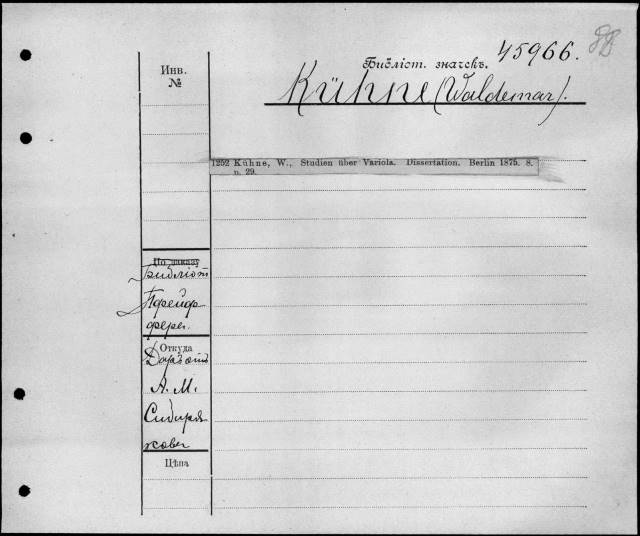 45966.
Библіот. значекъ.
Инв.
№
Kühne (Waldemar).
1252 Kühne, W., Studien über Variola. Dissertation. Berlin 1875. 8.
p. 29.
По заказу
Библіот
Пфейф
фера.
Откуда
Даръ отъ
А. М.
Сибиря
кова
Цѣна